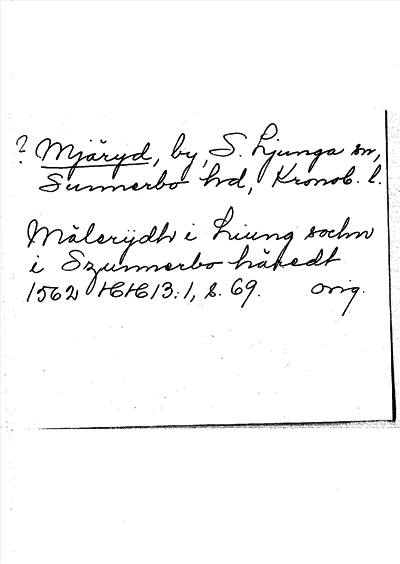 ? Mjäryd, by, S. Ljunga sn,
Sunnerbo hd, Kronob. l.
Mälerÿdh i Liung sochn
i Szunnerbo häredt
1562 HH 13:1, s. 69. orig.